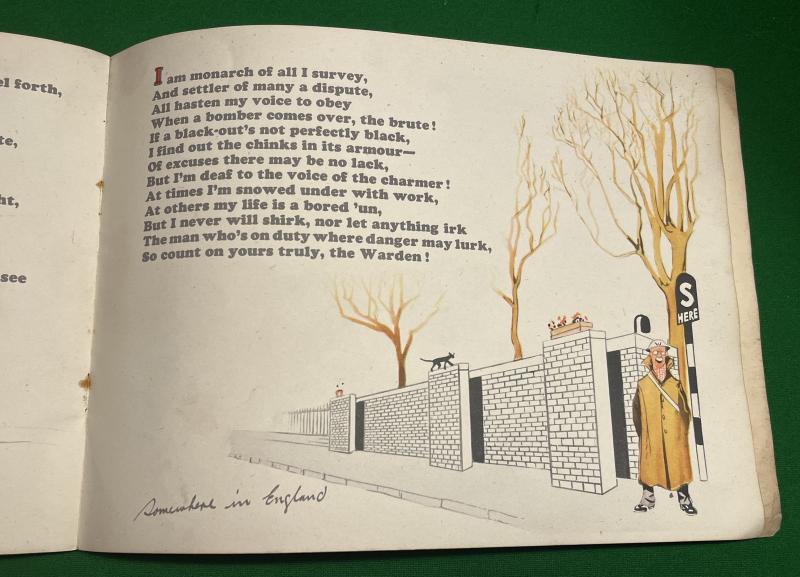 el forth,
te,
ht,
see
I am monarch of all I survey,
And settler of many a dispute,
All hasten my voice to obey
When a bomber comes over, the brute!
If a black-out's not perfectly black,
I find out the chinks in its armour—
Of excuses there may be no lack,
But I'm deaf to the voice of the charmer!
At times I'm snowed under with work,
At others my life is a bored 'un,
But I never will shirk, nor let anything irk
The man who's on duty where danger may lurk,
So count on yours truly, the Warden!
S
HERE
W
Somewhere in England